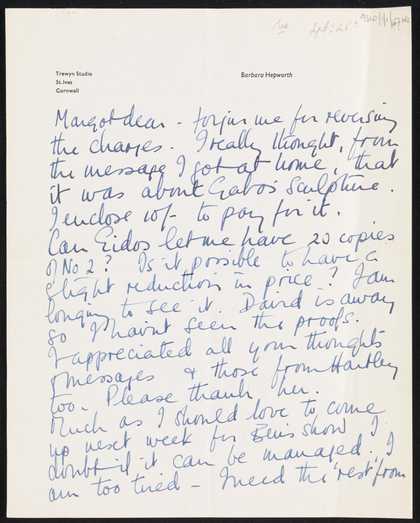 Trewyn Studio
St. Ives
Cornwall
Barbara Hepworth
Margot dear - forgive me for reversing
the charges. I really thought, from
the message I got at home, that
it was about Gabo's Sculpture.
I enclose 10/- to pay for it.
Can Eidos let me have 20 copies
of No 2? Is it possible to have a
slight reduction in price? I am
longing to see it. David is away
so I havnt seen the proofs.
I appreciated all your thoughts
& messages & those from Hartley
too. Please thank her.
Much as I should love to come
up next week for Ben's Show I
doubt if it can be managed. I
am too tired - I need the 'rest' from